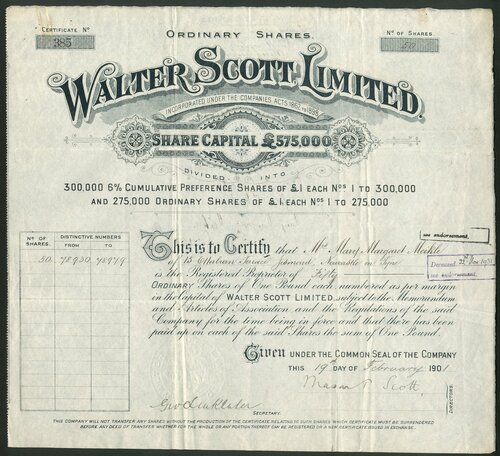 CERTIFICATE No
385
ORDINARY SHARES.
No OF SHARES
50
WALTER SCOTT LIMITED.
INCORPORATED UNDER THE COMPANIES ACTS, 1862 TO 1898.
SHARE CAPITAL £575,000
DIVIDED INTO
300,000 6% CUMULATIVE PREFERENCE SHARES OF £1 EACH Nos 1 TO 300,000
AND 275,000 ORDINARY SHARES OF £1 EACH Nos 1 TO 275,000
No OF SHARES.
DISTINCTIVE NUMBERS
FROM TO
50 78930 78979
see endorsement.
This is to Certify that Mrs Mary Margaret
of 15 Terrace Jesmond, Newcastle on Tyne
Deceased 22nd Nov 1931
see endorsement.
is the Registered Proprietor of Fifty
ORDINARY Shares of One Pound each numbered as per margin
in the Capital of WALTER SCOTT LIMITED, subject to the Memorandum
and Articles of Association and the Regulations of the said
Company for the time being in force and that there has been
paid up on each of the said Shares the sum of One Pound.
Given UNDER THE COMMON SEAL OF THE COMPANY
THIS 19th DAY OF February 1901
Mason T. Scott,
DIRECTORS.
Geo Linklater
SECRETARY.
THIS COMPANY WILL NOT TRANSFER ANY SHARES WITHOUT THE PRODUCTION OF THE CERTIFICATE RELATING TO SUCH SHARES WHICH CERTIFICATE MUST BE SURRENDERED
BEFORE ANY DEED OF TRANSFER WHETHER FOR THE WHOLE OR ANY PORTION THEREOF CAN BE REGISTERED OR A NEW CERTIFICATE ISSUED IN EXCHANGE.